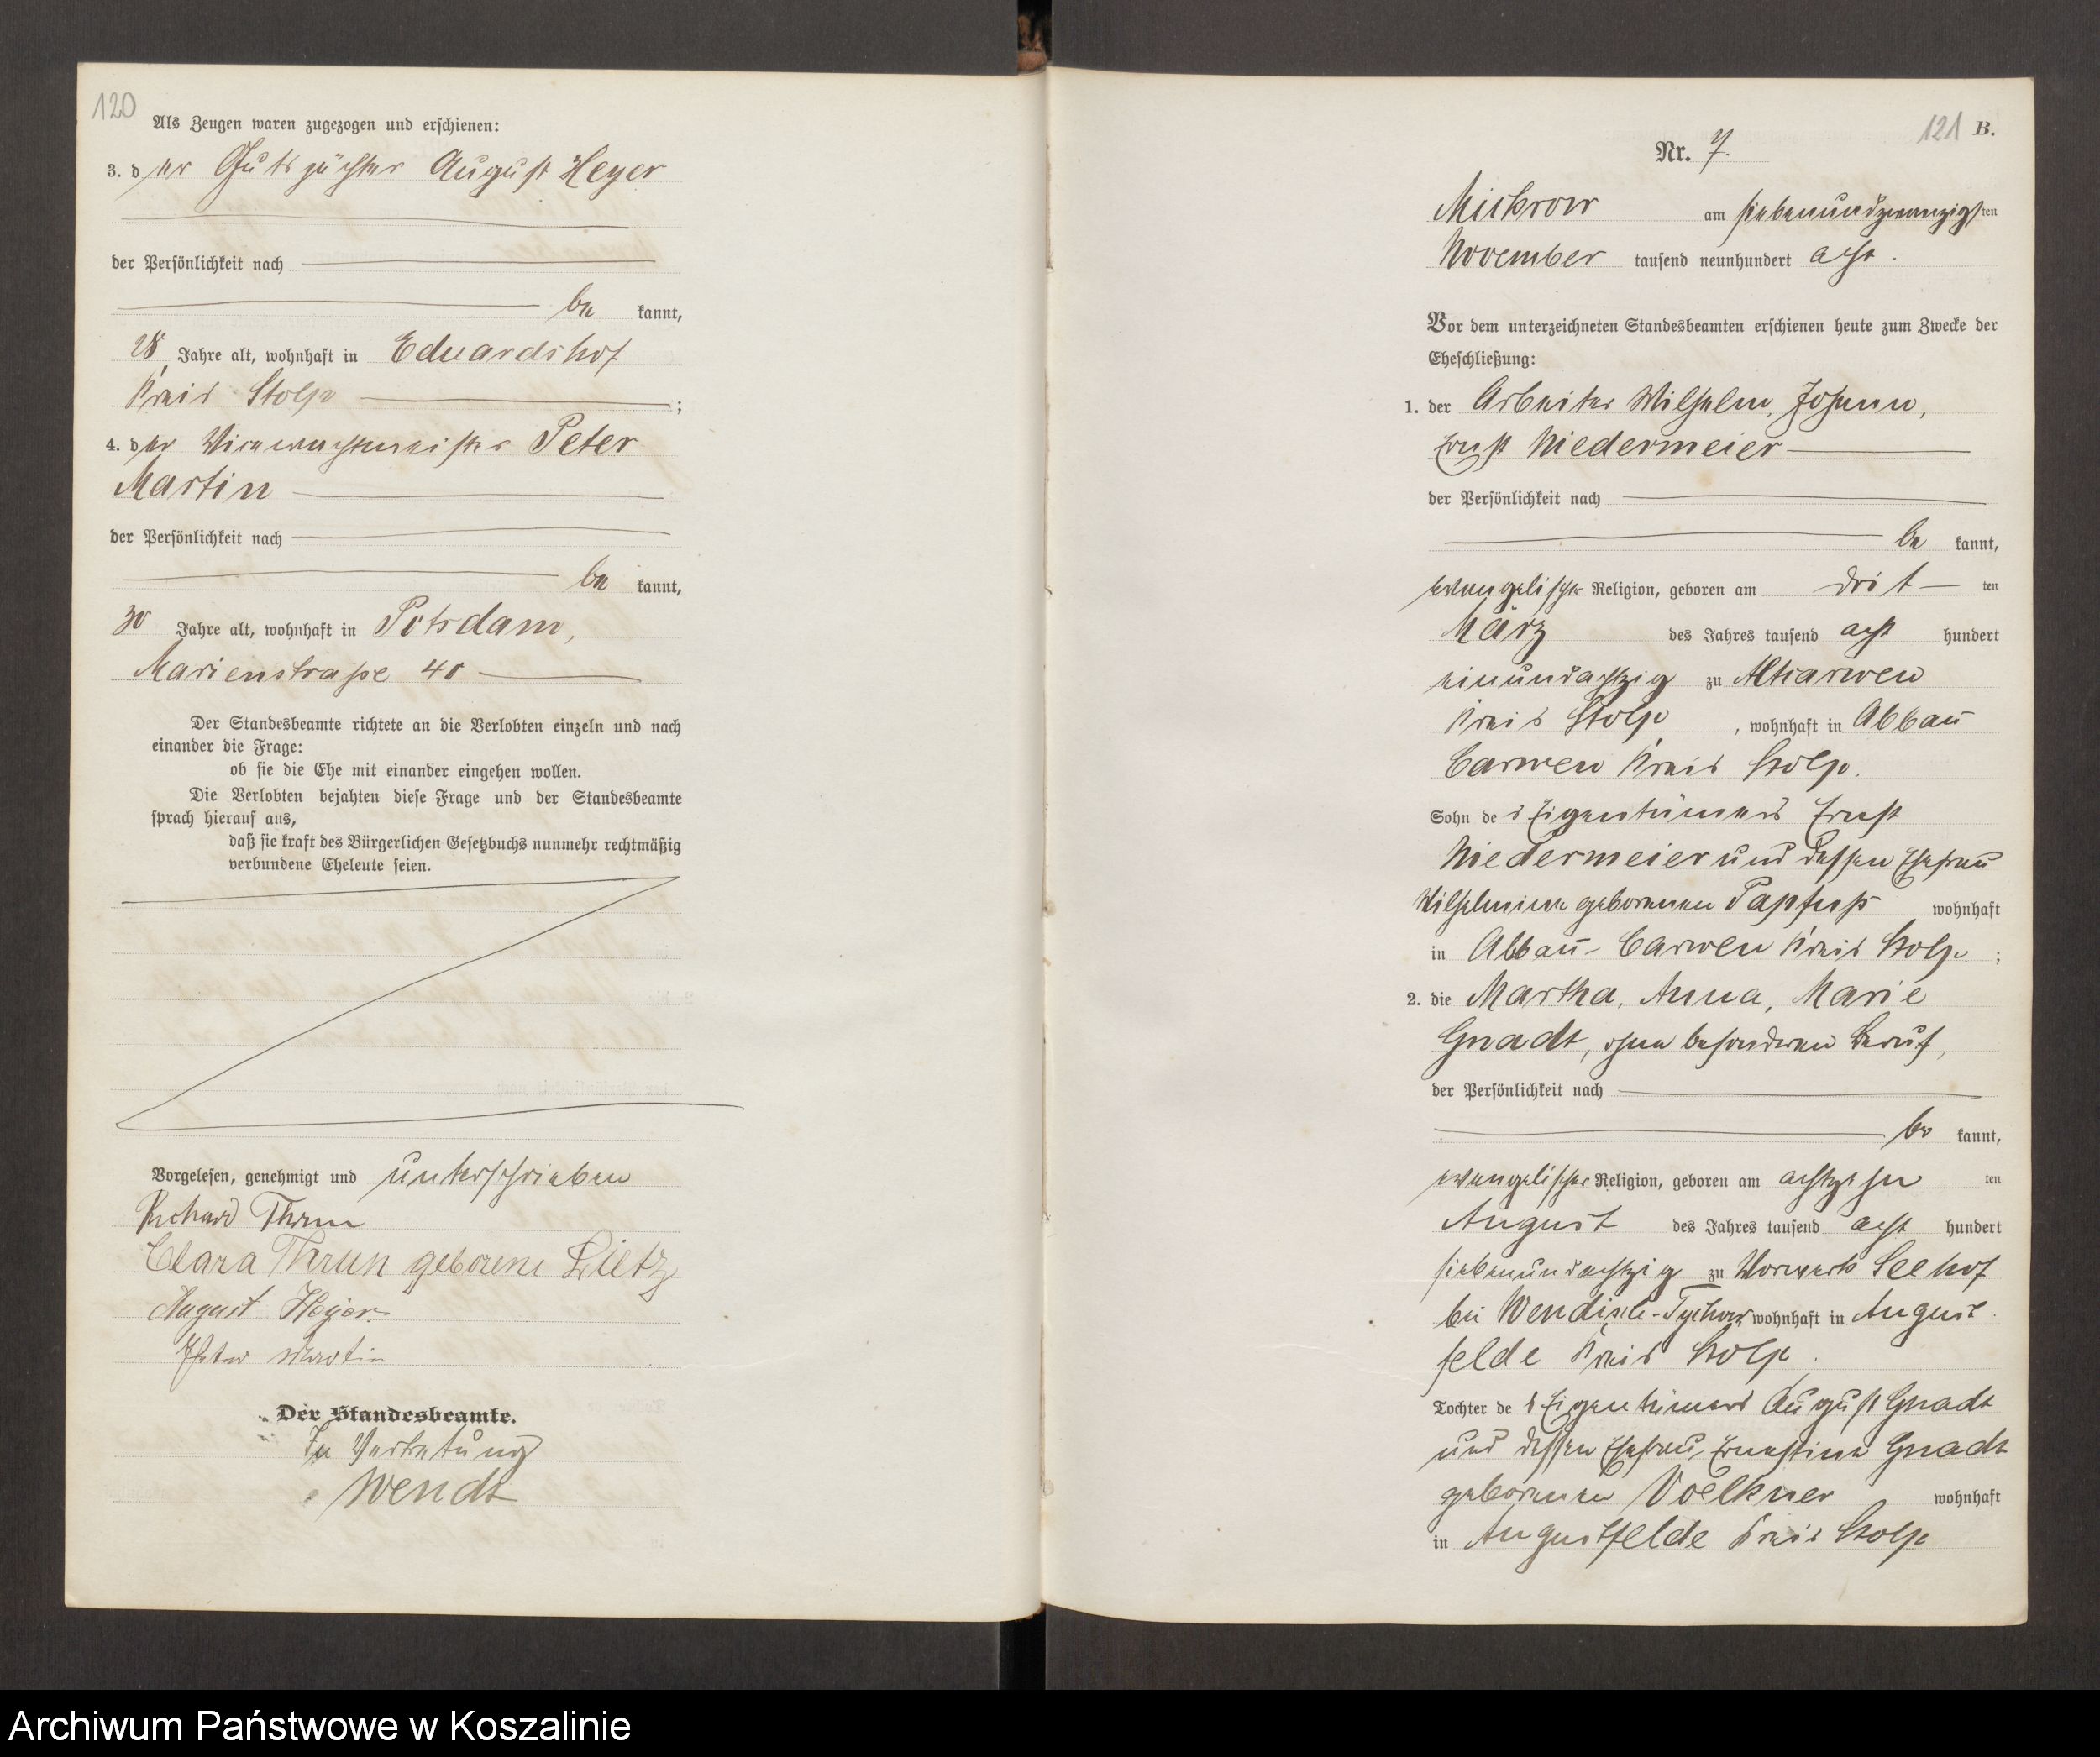 120
Als Zeugen waren zugezogen und erschienen:
3. der Gutspächter August Heyer
der Persönlichkeit nach
be kannt,
28 Jahre alt, wohnhaft in Eduardshof
Kreis Stolp ;
4. der Vicewachtmeister Peter
Martin
der Persönlichkeit nach
be kannt,
30 Jahre alt, wohnhaft in Potsdam,
Marienstraße 40
Der Standesbeamte richtete an die Verlobten einzeln und nach
einander die Frage:
ob sie die Ehe mit einander eingehen wollen.
Die Verlobten bejahten diese Frage und der Standesbeamte
sprach hierauf aus,
daß sie kraft des Bürgerlichen Gesetzbuchs nunmehr rechtmäßig
verbundene Eheleute seien.
Vorgelesen, genehmigt und unterschrieben
Richard Thrun
Clara Thrun geborene Lietz
August Heyer
Peter Martin
Der Standesbeamte.
In Vertretung
Wendt
121 B.
Nr. 7.
Mickrow am siebenundzwanzigsten
November tausend neunhundert acht.
Vor dem unterzeichneten Standesbeamten erschienen heute zum Zwecke der
Eheschließung:
1. der Arbeiter Wilhelm, Johann,
Ernst Niedermeier
der Persönlichkeit nach
be kannt,
evangelischer Religion, geboren am drit ten
März des Jahres tausend acht hundert
einundachtzig zu Altcarwen
Kreis Stolp, wohnhaft in Abbau
Carwen Kreis Stolp.
Sohn des Eigentümers Ernst
Niedermeier und dessen Ehefrau
Wilhelmine geborenen Papfuß wohnhaft
in Abbau-Carwen Kreis Stolp ;
2. die Martha, Anna, Marie
Gnadt, ohne besonderen Beruf,
der Persönlichkeit nach
be kannt,
evangelischer Religion, geboren am achtzehn ten
August des Jahres tausend acht hundert
siebenundachtzig zu Vorwerk Seehof
bei Wendisch-Tychow wohnhaft in August
felde Kreis Stolp.
Tochter des Eigentümers August Gnadt
und dessen Ehefrau Ernestine Gnadt
geborenen Voelkner wohnhaft
in Augustfelde Kreis Stolp
Archiwum Państwowe w Koszalinie